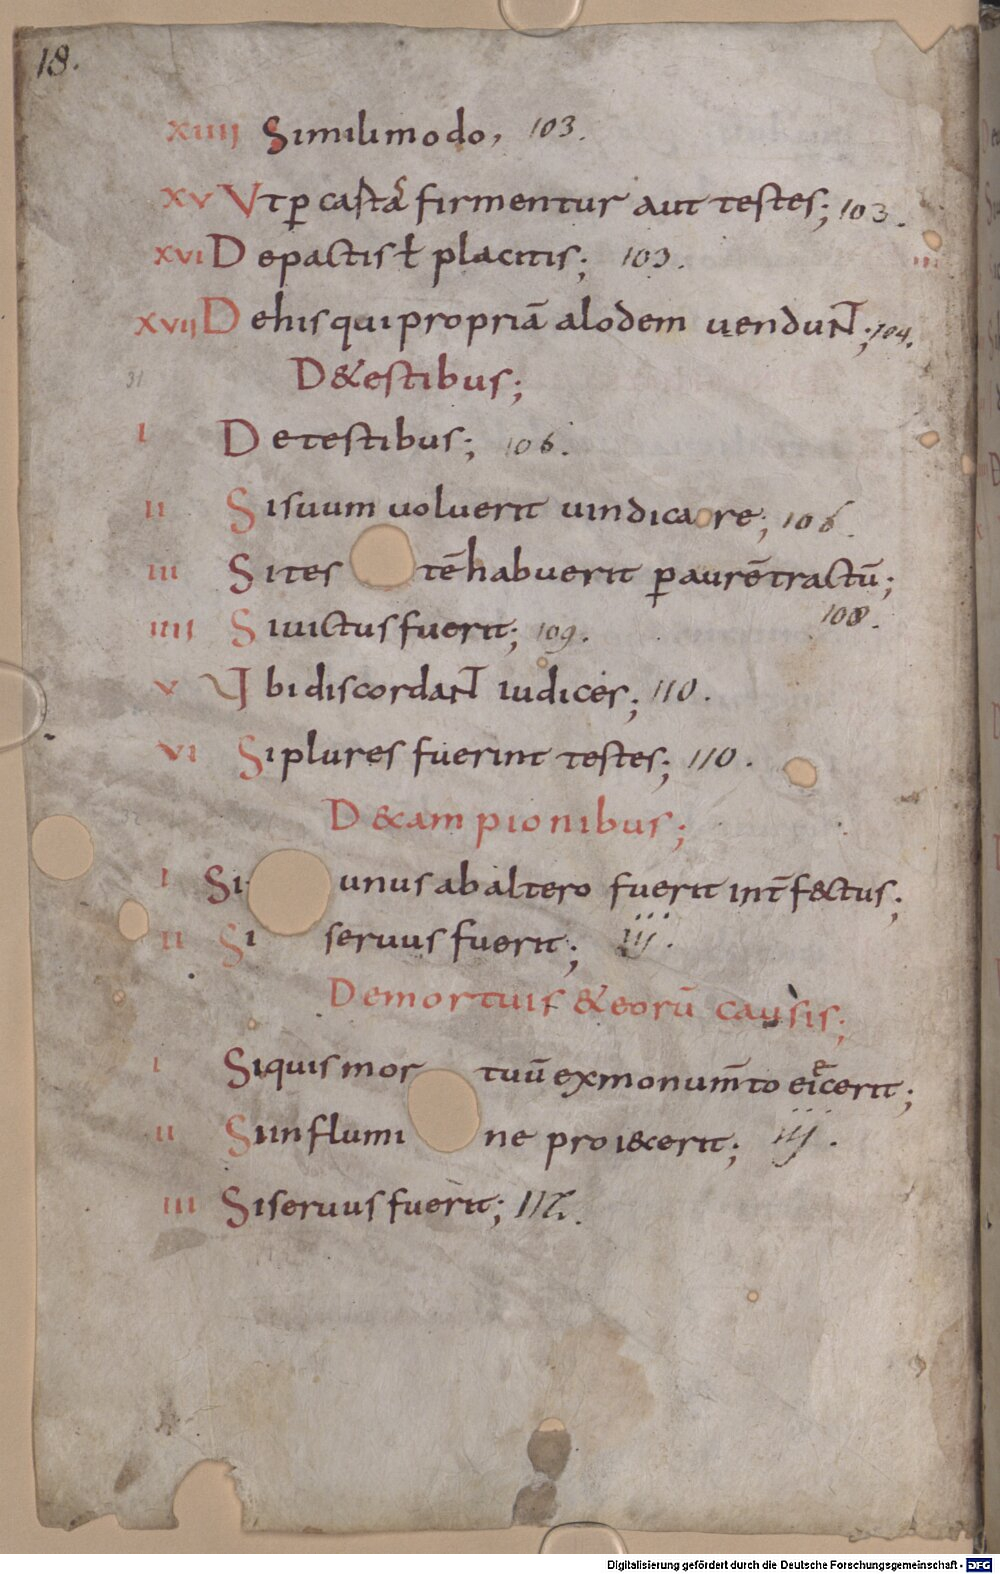 18.
xiiii Similimodo, 103.
xv Vt p̲ castā firmentur aut testes; 103.
xvi Depactis ł placitis; 103.
xvii Dehis qui propriā alodem uendunt; 104.
31 D&estibus;
i Detestibus; 106.
ii Sisuum uoluerit uindicare; 106.
iii Sites tē habuerit p̲ aurē tractū;
108.
iiii Siuictus fuerit; 109.
v Vbi discordant iudices; 110.
vi Siplures fuerint testes; 110.
D&campionibus;
i Si unus ab altero fuerit int̄fectus;
ii Si seruus fuerit; iij.
Demortuis & eorū causis;
i Siquis mor tuū ex monum̄to eiecerit;
ii Siin flumi ne proi&cerit; iij.
iii Siseruus fuerit; 112.
Digitalisierung gefördert durch die Deutsche Forschungsgemeinschaft - DFG